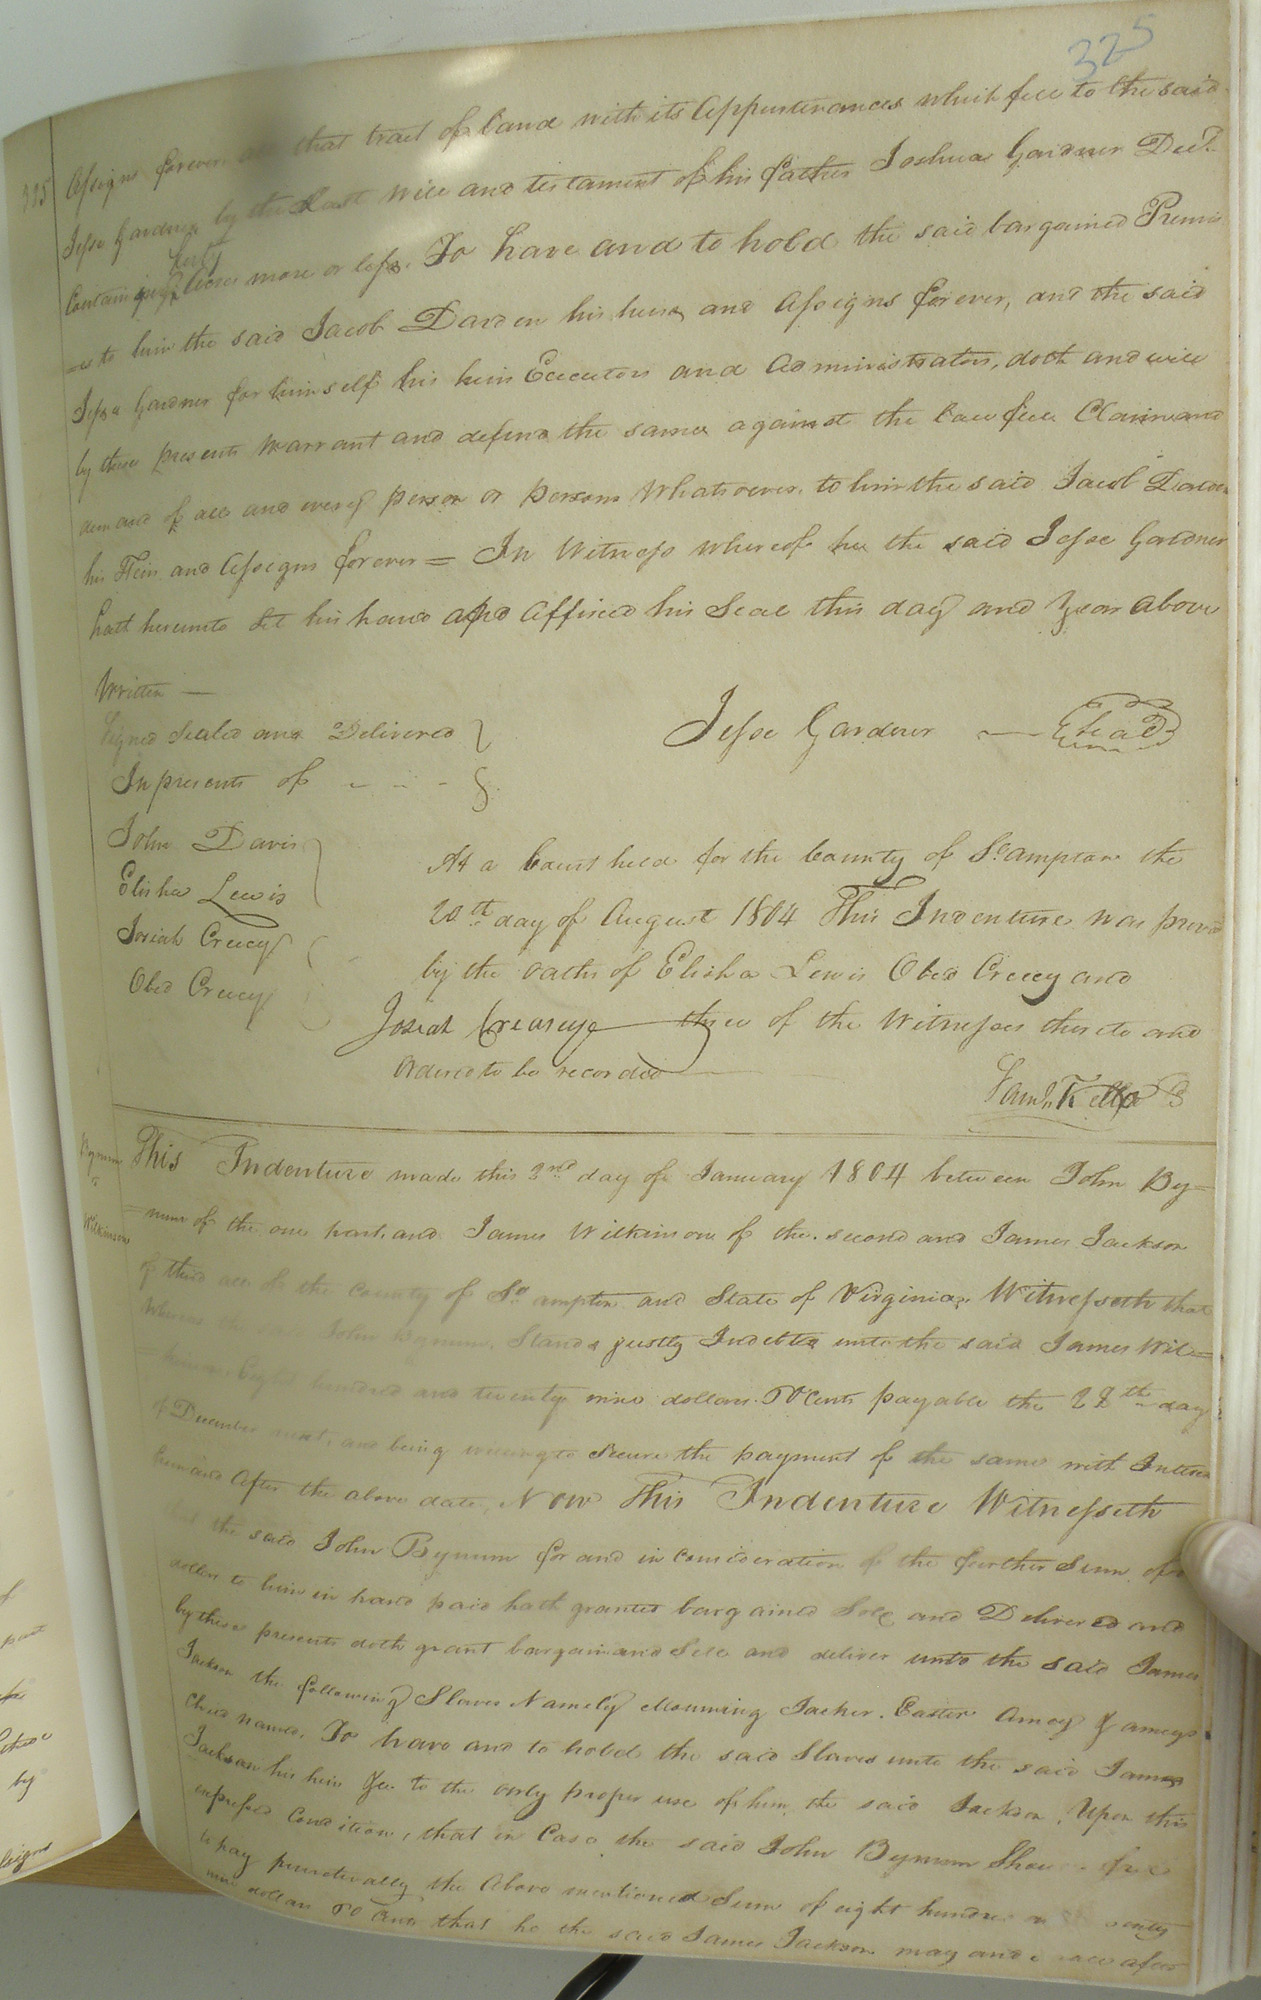 325
325
Assigns forever all that tract of Land with its Appurtenances which fell to the said
Jesse Gardner by the Last Will and testament of his father Joshua Gardner Decd.
forty
Containing Acres more or less. To have and to hold the said bargained Premis
=es to him the said Jacob Darden his heirs and Assigns forever, and the said
Jesse Gardner for himself his heirs Executors and Administrators, doth and will
by these presents Warrant and defend the same against the Lawfull Claim and
demand of all and every person or persons Whatsoever. to him the said Jacob Darden
his Heirs and Assigns forever = In Witness whereof he the said Jesse Gardner
hath hereunto Set his hand and Affixed his Seal this day and Year Above
Written —
Signed Sealed and Delivered
Jesse Gardner — Seal
In presents of
John Davis
Elisha Lewis
Josiah Creecy
Obed Creecy
At a Court held for the County of So.ampton the
20th day of August 1804 This Indenture was proved
by the oaths of Elisha Lewis Obed Creecy and
Josiah Creasey three of the Witnesses thereto and
Ordered to be recorded
Saml. Kello C
Bynum
to
Wilkinson
This Indenture made this 3rd day of January 1804 between John By=
=num of the one part, and James Wilkinson of the second and James Jackson
of third all of the County of So.ampton and State of Virginia. Witnesseth that
Whereas John Bynum Stands justly Indebted unto the said James Wil=
Eight hundred and twenty nine dollars 50 Cents payable the 28th day
of December next, and being willing to Secure the payment of the same with Interest
from and After the above date, Now This Indenture Witnesseth
the said John Bynum for and in Consideration of the further Sum of
dollar to him in hand paid hath granted bargained Sold and Delivered and
by these presents doth grant bargain and Sell and deliver unto the said James
Jackson the following Slaves Namely Mourning Jacker. Easter Amey & ameys
Child named. To have and to hold the said Slaves unto the said James
Jackson his heirs &c. to the only proper use of him the said Jackson. Upon this
express Condition, that in Case the said John Bynum Should fail
to pay punctually the Above mentioned Sum of eight hundred twenty
nine dollars 50 that he the said James Jackson may and after